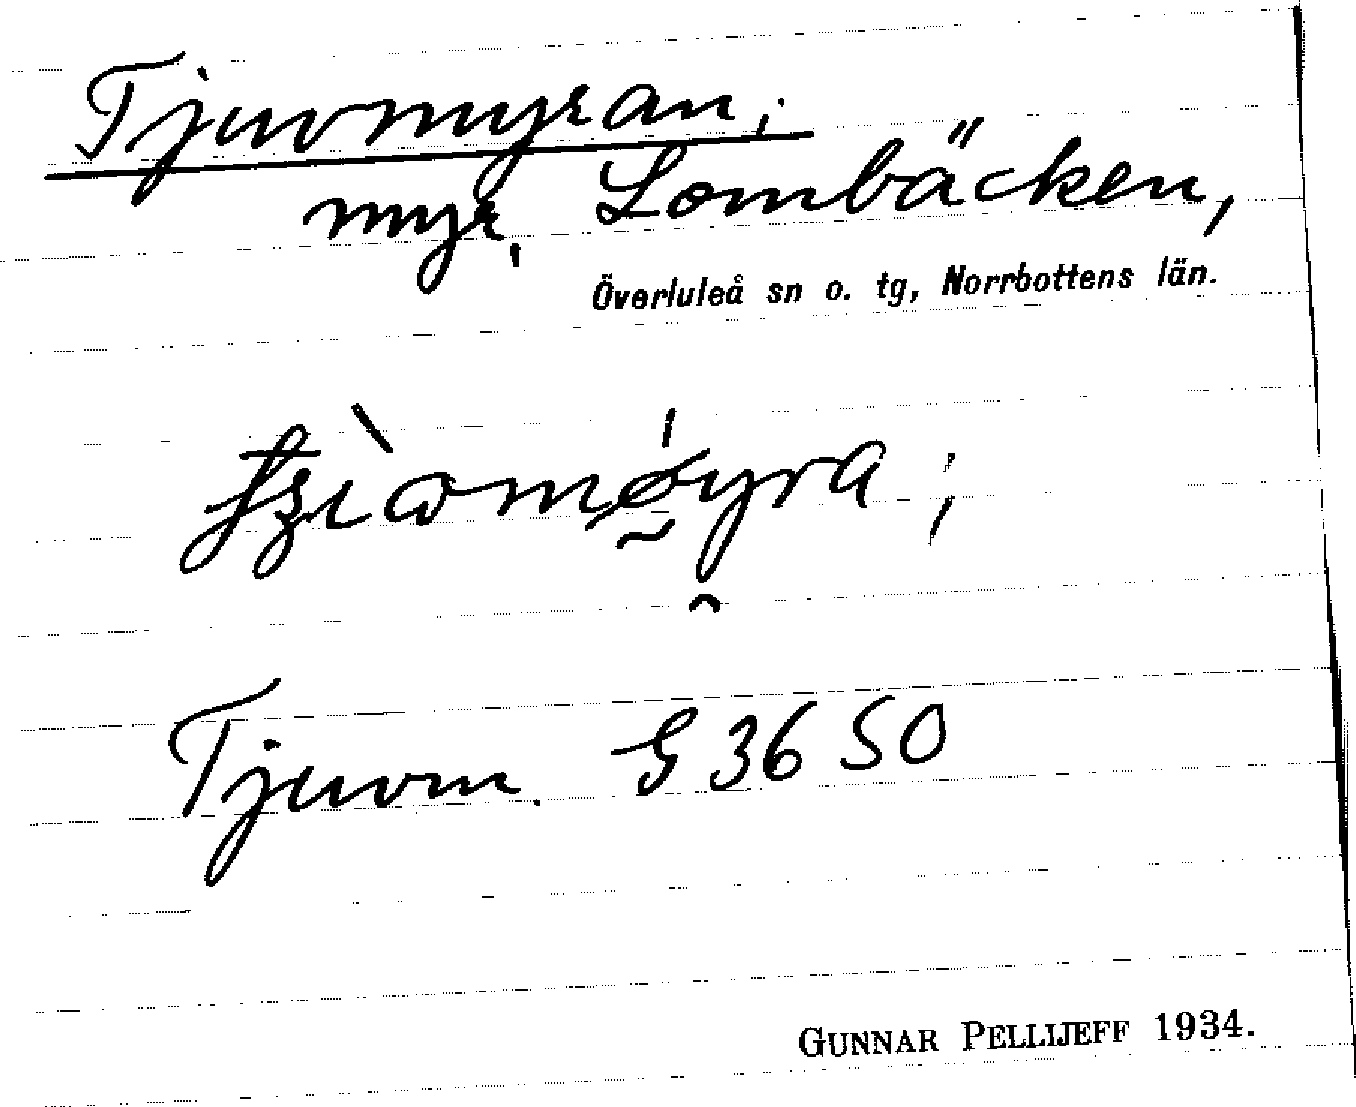 Tjuvmyran,
myr, Lombäcken,
Överluleå sn o. tg, Norrbottens län.
Tjuvm. G 36 SO
GUNNAR PELLIJEFF 1934.